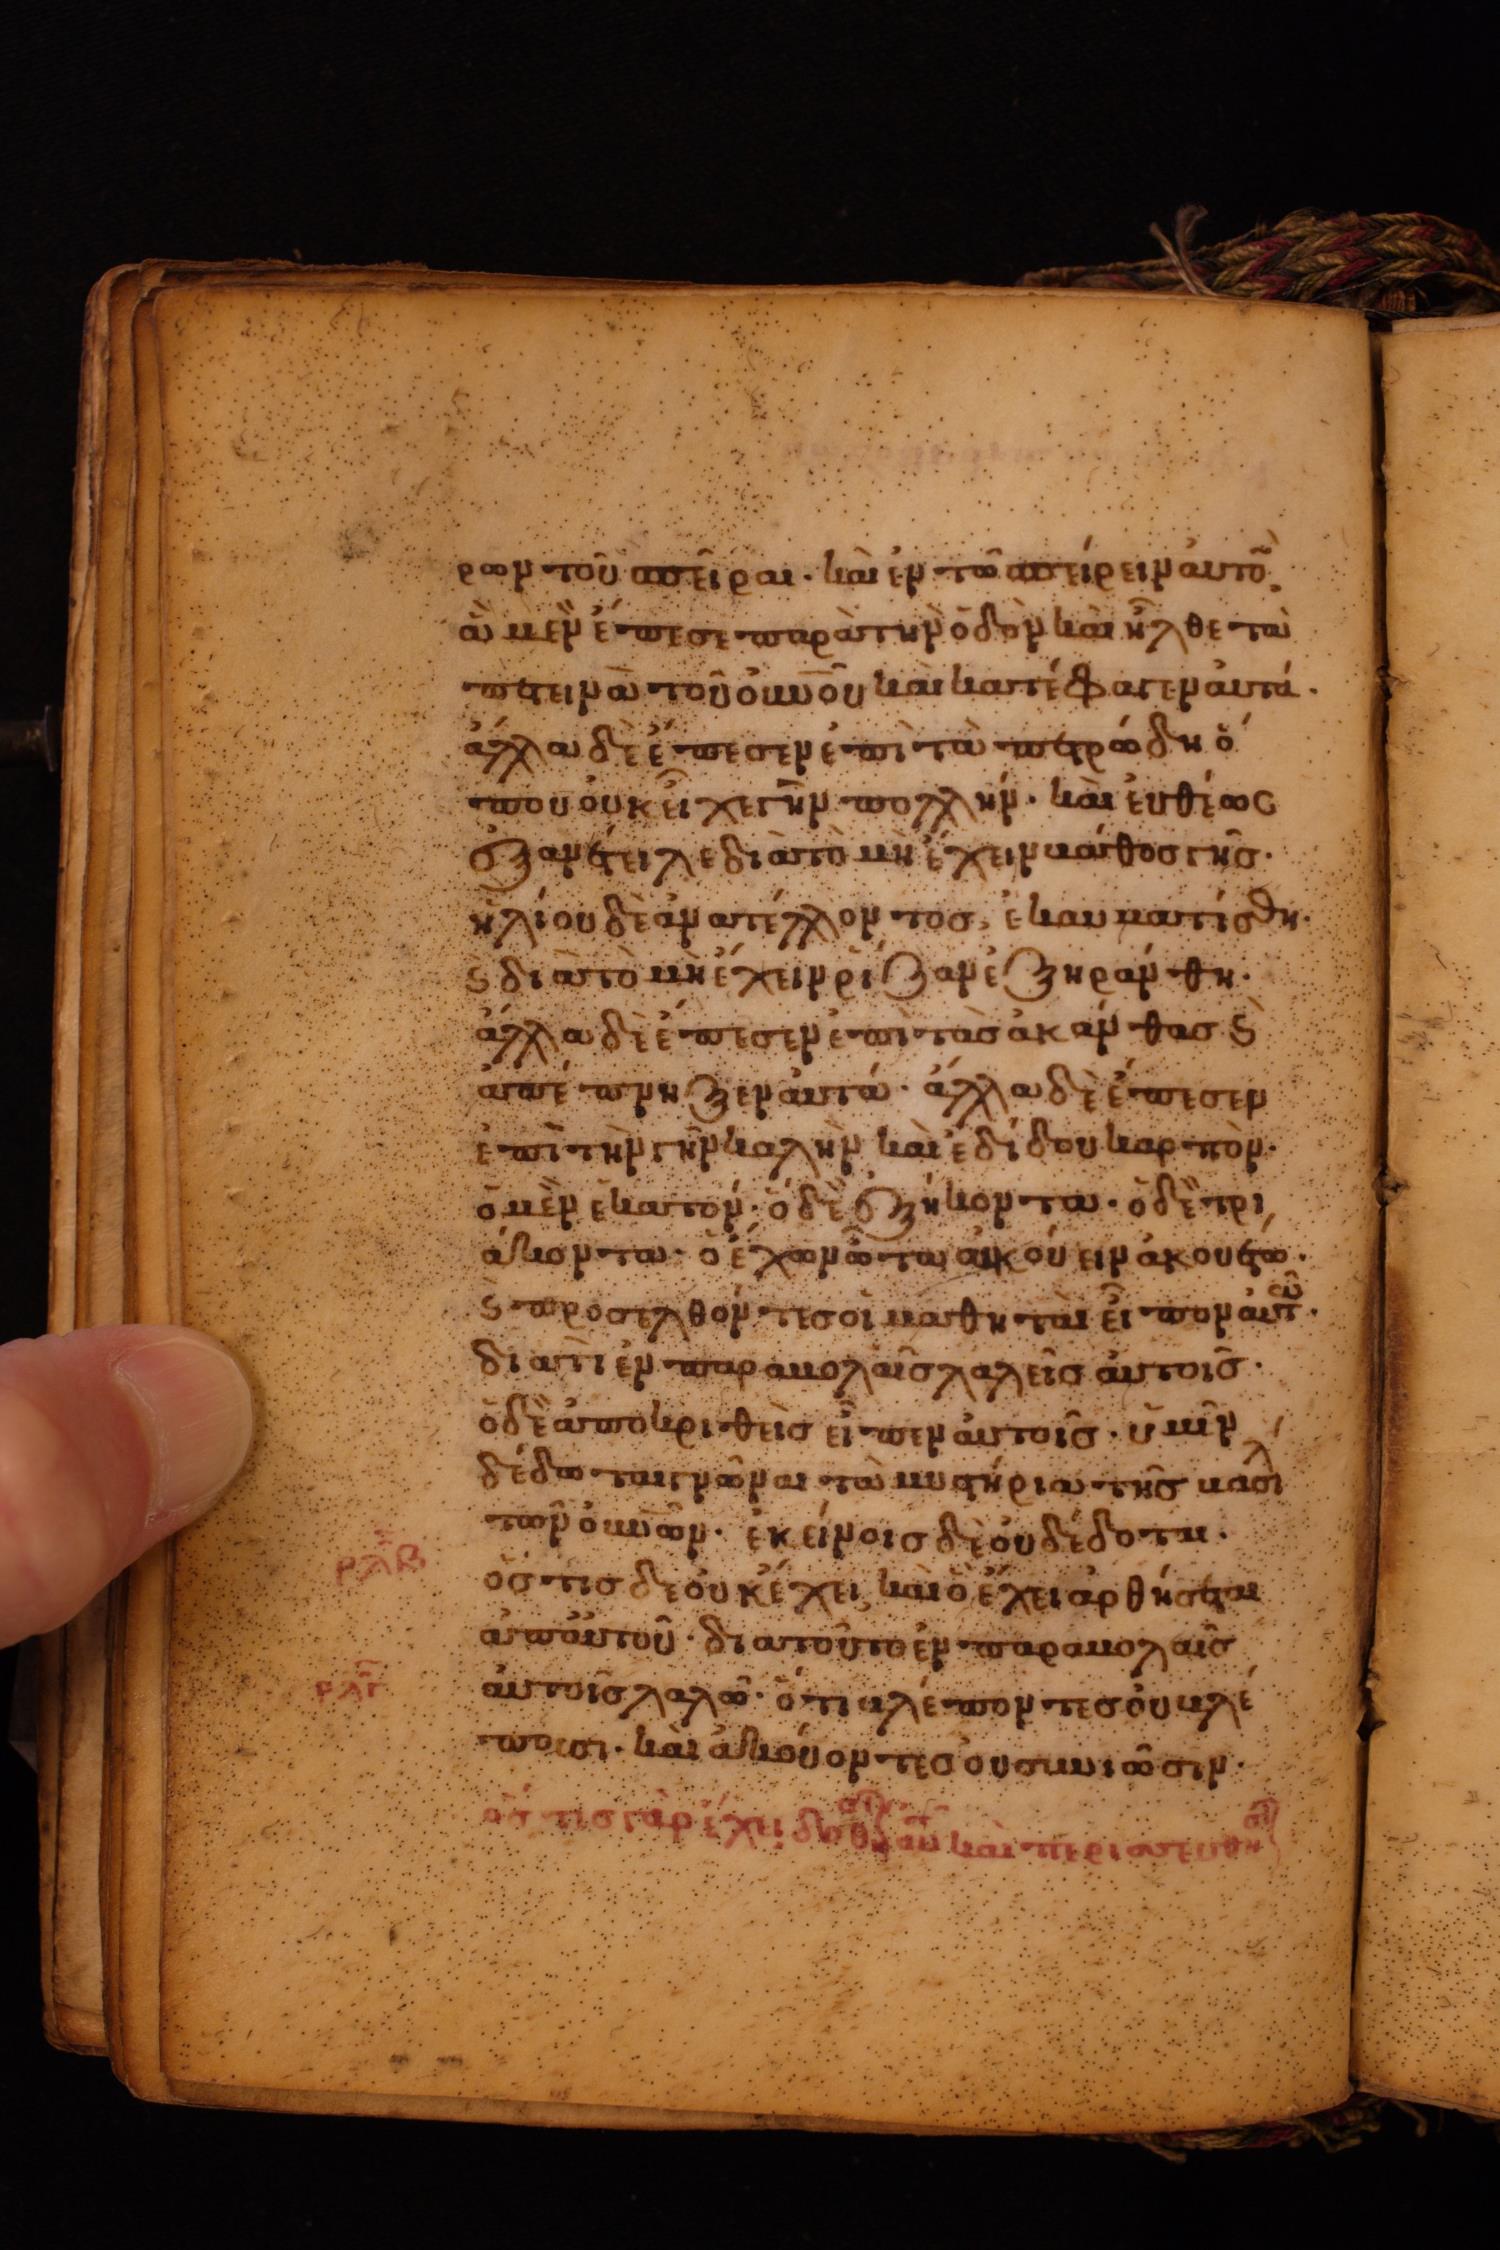 ρων τοῦ σπεῖραι· καὶ ἐν τῶ σπείρειν αὐτὸ(ν),
ἃ μὲν ἔπεσε παρὰ τὴν ὁδὸν καὶ ἦλθε τὰ
πετεινὰ τοῦ οὐνοῦ καὶ κατέφαγεν αὐτά·
ἄλλα δὲ ἔπεσεν ἐπὶ τὰ πετρώδη ὅ
που οὐκ εἶχε γῆν πολλήν· καὶ εὐθέως
ἐξανέτειλε διὰ τὸ μὴ ἔχειν βάθος γῆς·
ἡλίου δὲ ἀνατείλλοντος, ἐκαυματίσθη·
ϗ διὰ τὸ μὴ ἔχειν ρίζαν ἐξηράνθη·
ἄλλα δὲ ἔπεσεν ἐπὶ τὰς ἀκάνθας ϗ
ἀπέπνηξεν αὐτά· ἄλλα δὲ ἔπεσεν
ἐπὶ τὴν γῆν καλὴν καὶ ἐδίδου καρπὸν·
ὃ μὲν ἑκατόν· ὃ δὲ ἑξήκοντα· ὃ δὲ τρι
άκοντα· ὁ ἔχων ὦτα ἀκούειν ἀκουέτω·
ϗ προσελθόντες οἱ μαθηταὶ εἶπον αὐτῶ·
διατὶ ἐν παραβολαῖς λαλεῖς αὐτοῖς·
ὁ δὲ ἀποκριθεὶς εἶπεν αὐτοῖς· ὑμῖν
δέδοται γνῶναι τὰ μυστήρια τῆς βασιλ
τῶν οὐνῶν· ἐκείνοις δὲ οὐ δέδοται·
ρλβ ὅστις δὲ οὐκ ἔχει, καὶ ὃ ἔχει ἀρθήσεται
ἀπ' αὐτοῦ· διατοῦτο ἐν παραβολαῖς
ρλγ αὐτοῖς λαλῶ· ὅτι βλέποντες οὐ βλέ
πουσι· καὶ ἀκούοντες οὐ συνιῶσιν·
ὅστις γὰρ ἔχει, δοθήσ αὐτ καὶ περισσευθησ